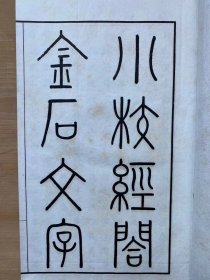 小校經閣
金石文字